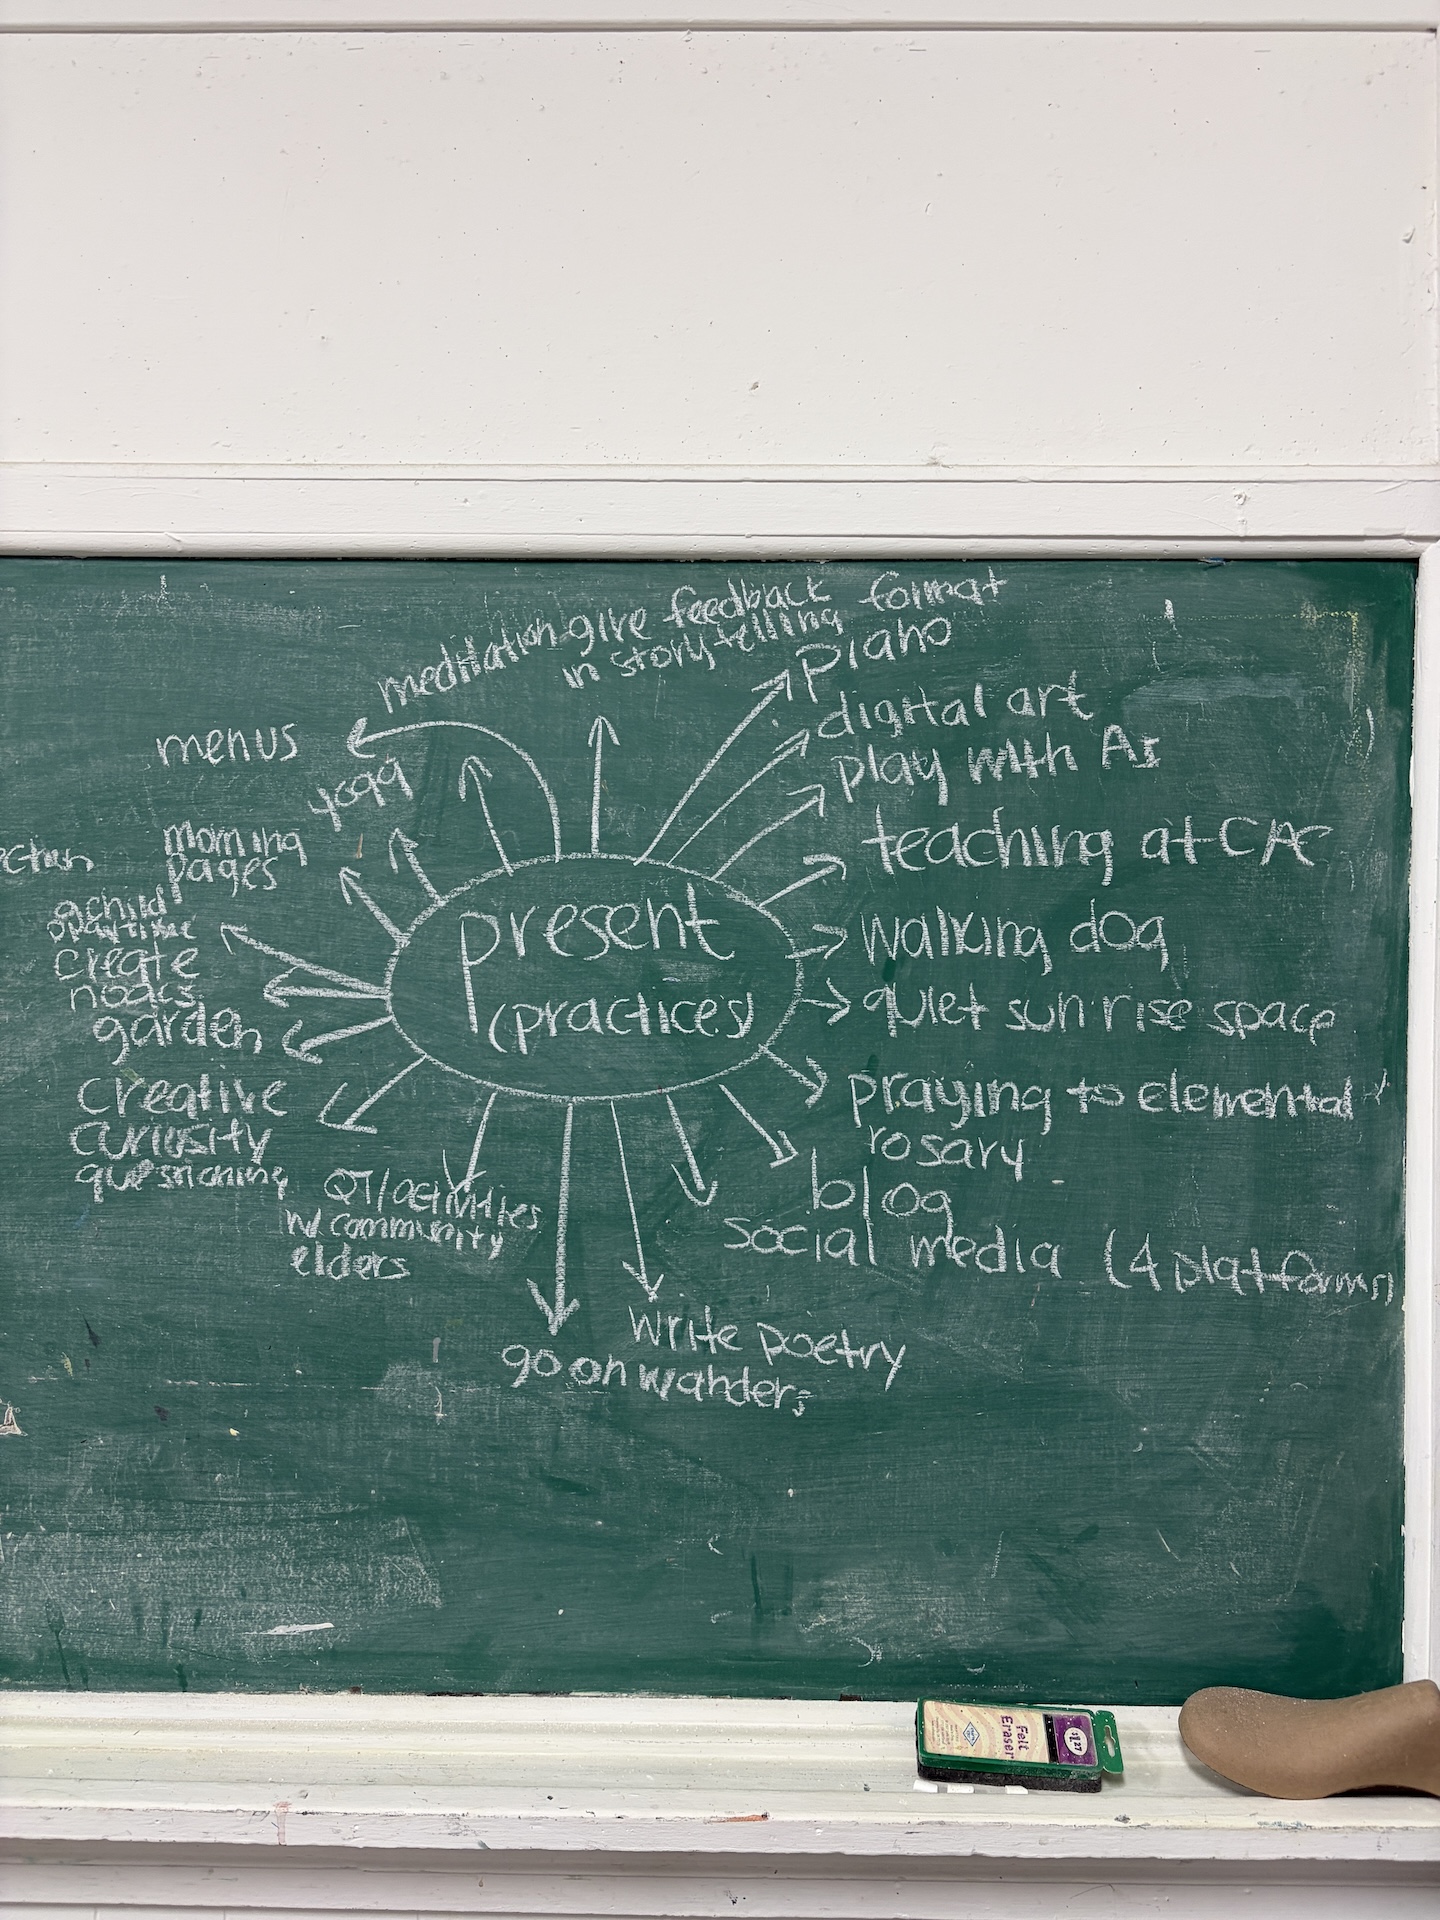 meditation
give feedback format
in storytelling
piano
digital art
play with AI
menus
yoga
teaching at CAC
morning
pages
present
(practices)
walking dog
child
create
garden
quiet sunrise space
creative
curiosity
questioning
praying to elemental
rosary
QT/activities
w/ community
elders
blog
social media (4 platforms)
write poetry
go on wanders
Felt
Eraser
$1.27